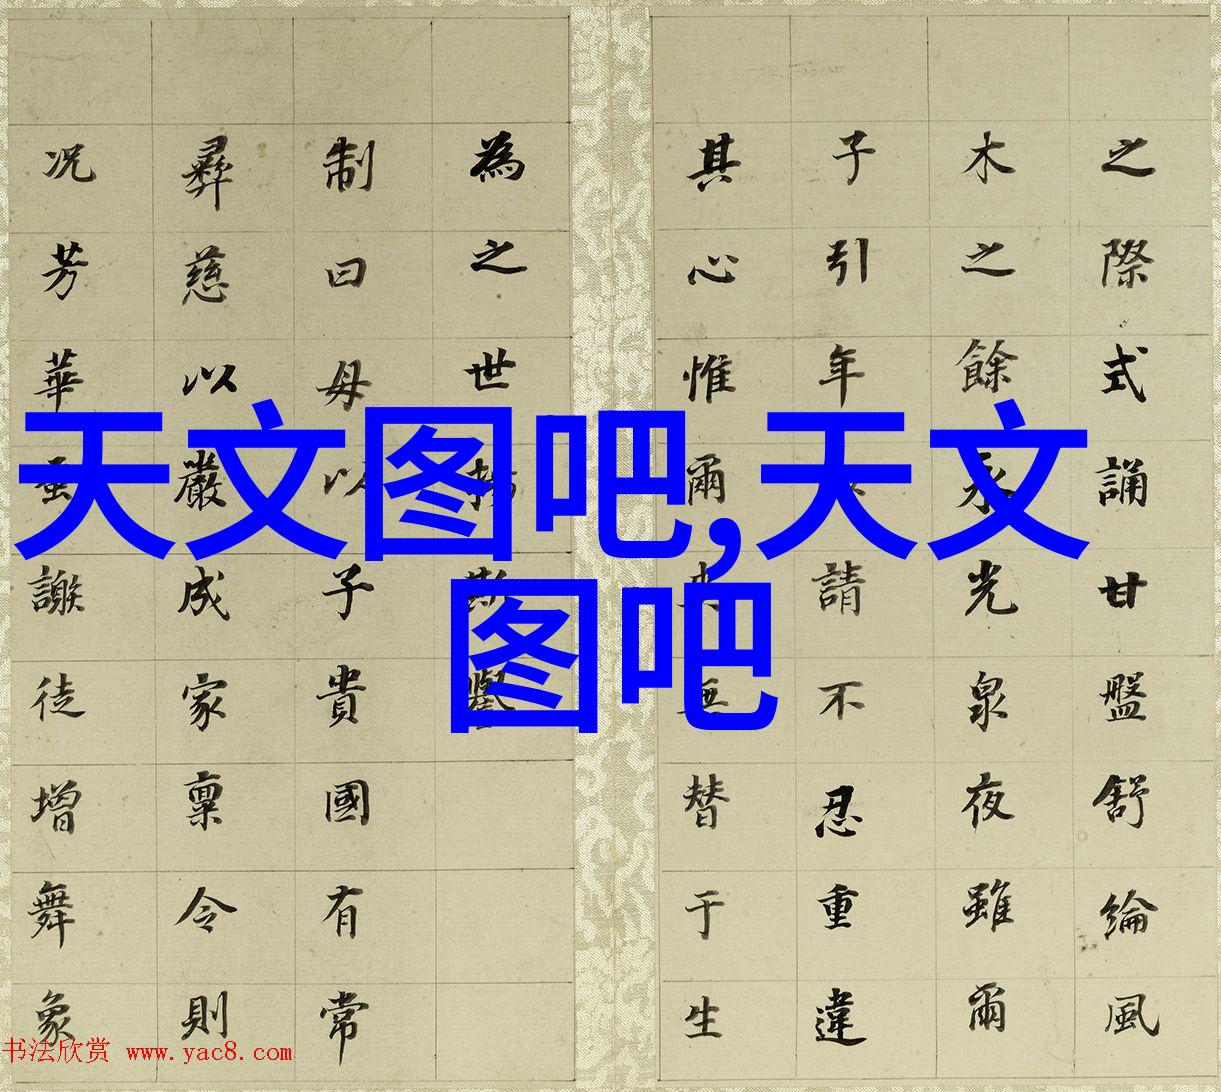 天文图吧,天文
图吧
之際式誦甘盤舒綸風
木之餘永光泉夜雖爾
子引年請不忍重違
其心惟爾無替于生
為之世揚斯
制曰母以子貴國有常
彝慈以嚴成家稟令則
況芳華蚤謝徒增舞象
书法欣赏 www.yac8.com